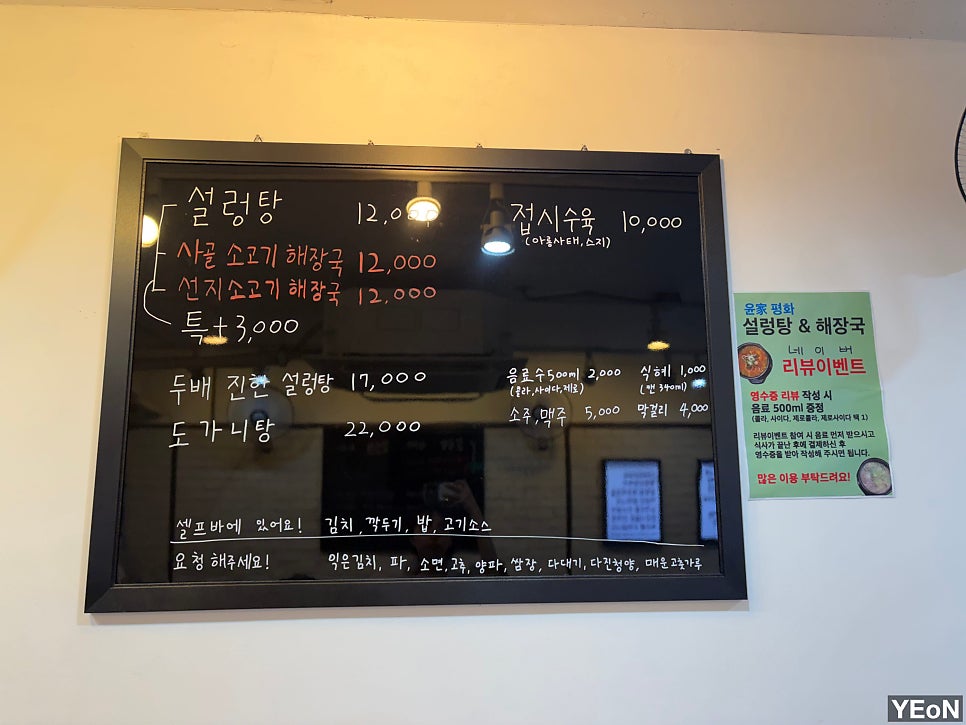 설렁탕 12,000
사골 소고기 해장국 12,000
선지소고기 해장국 12,000
특 + 3,000
두배 진한 설렁탕 17,000
도가니탕 22,000
접시수육 10,000
(아롱사태,스지)
음료수500ml 2,000
(콜라,사이다,제로)
식혜 1,000
(캔 340ml)
소주,맥주 5,000
막걸리 4,000
셀프바에 있어요! 김치, 깍두기, 밥, 고기소스
요청해주세요! 익은김치, 파, 소면, 고추, 양파, 쌈장, 다대기, 다진청양, 매운고춧가루
윤家 평화
설렁탕 & 해장국
네이버
리뷰이벤트
영수증 리뷰 작성 시
음료 500ml 증정
(콜라, 사이다, 제로콜라, 제로사이다 택 1)
리뷰이벤트 참여 시 음료 먼저 받으시고
식사가 끝난 후에 결제하신 후
영수증을 받아 작성해 주시면 됩니다.
많은 이용 부탁드려요!
YEoN